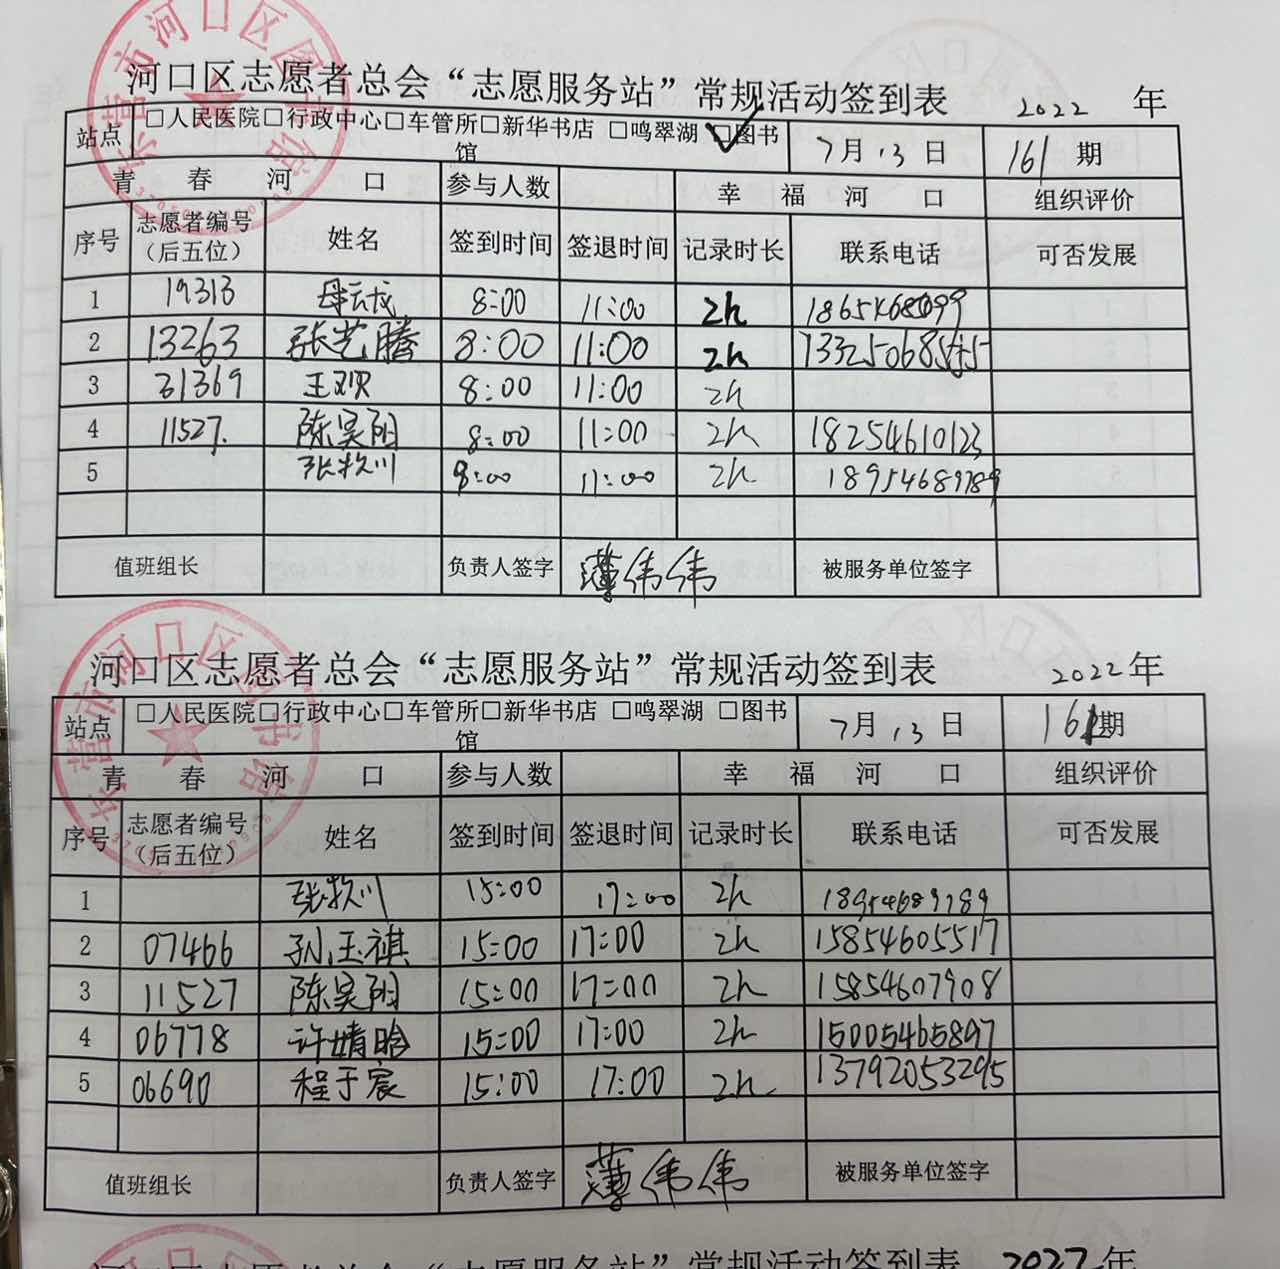 河口区志愿者总会“志愿服务站”常规活动签到表 2022 年
站点 □人民医院□行政中心□车管所□新华书店 □鸣翠湖 ☑图书馆 7月13日 161期
青 春 河 口 参与人数 幸 福 河 口 组织评价
序号 志愿者编号（后五位） 姓名 签到时间 签退时间 记录时长 联系电话 可否发展
1 19313 8:00 11:00 2h
2 13263 张艺腾 8:00 11:00 2h
3 31369 王欢 8:00 11:00 2h
4 11527. 陈昊阳 8:00 11:00 2h 18254610123
5 张牧川 8:00 11:00 2h 18954689789
值班组长 负责人签字 薄伟伟 被服务单位签字
河口区志愿者总会“志愿服务站”常规活动签到表 2022年
站点 □人民医院□行政中心□车管所□新华书店 □鸣翠湖 □图书馆 7月13日 161期
青 春 河 口 参与人数 幸 福 河 口 组织评价
序号 志愿者编号（后五位） 姓名 签到时间 签退时间 记录时长 联系电话 可否发展
1 张牧川 15:00 17:00 2h 18954689789
2 07466 孙玉祺 15:00 17:00 2h 15854605517
3 11527 陈昊阳 15:00 17:00 2h 15854607908
4 06778 许婧晗 15:00 17:00 2h 15005465897
5 06690 程于宸 15:00 17:00 2h 13792053295
值班组长 负责人签字 薄伟伟 被服务单位签字
河口区志愿者总会“志愿服务站”常规活动签到表 2022年